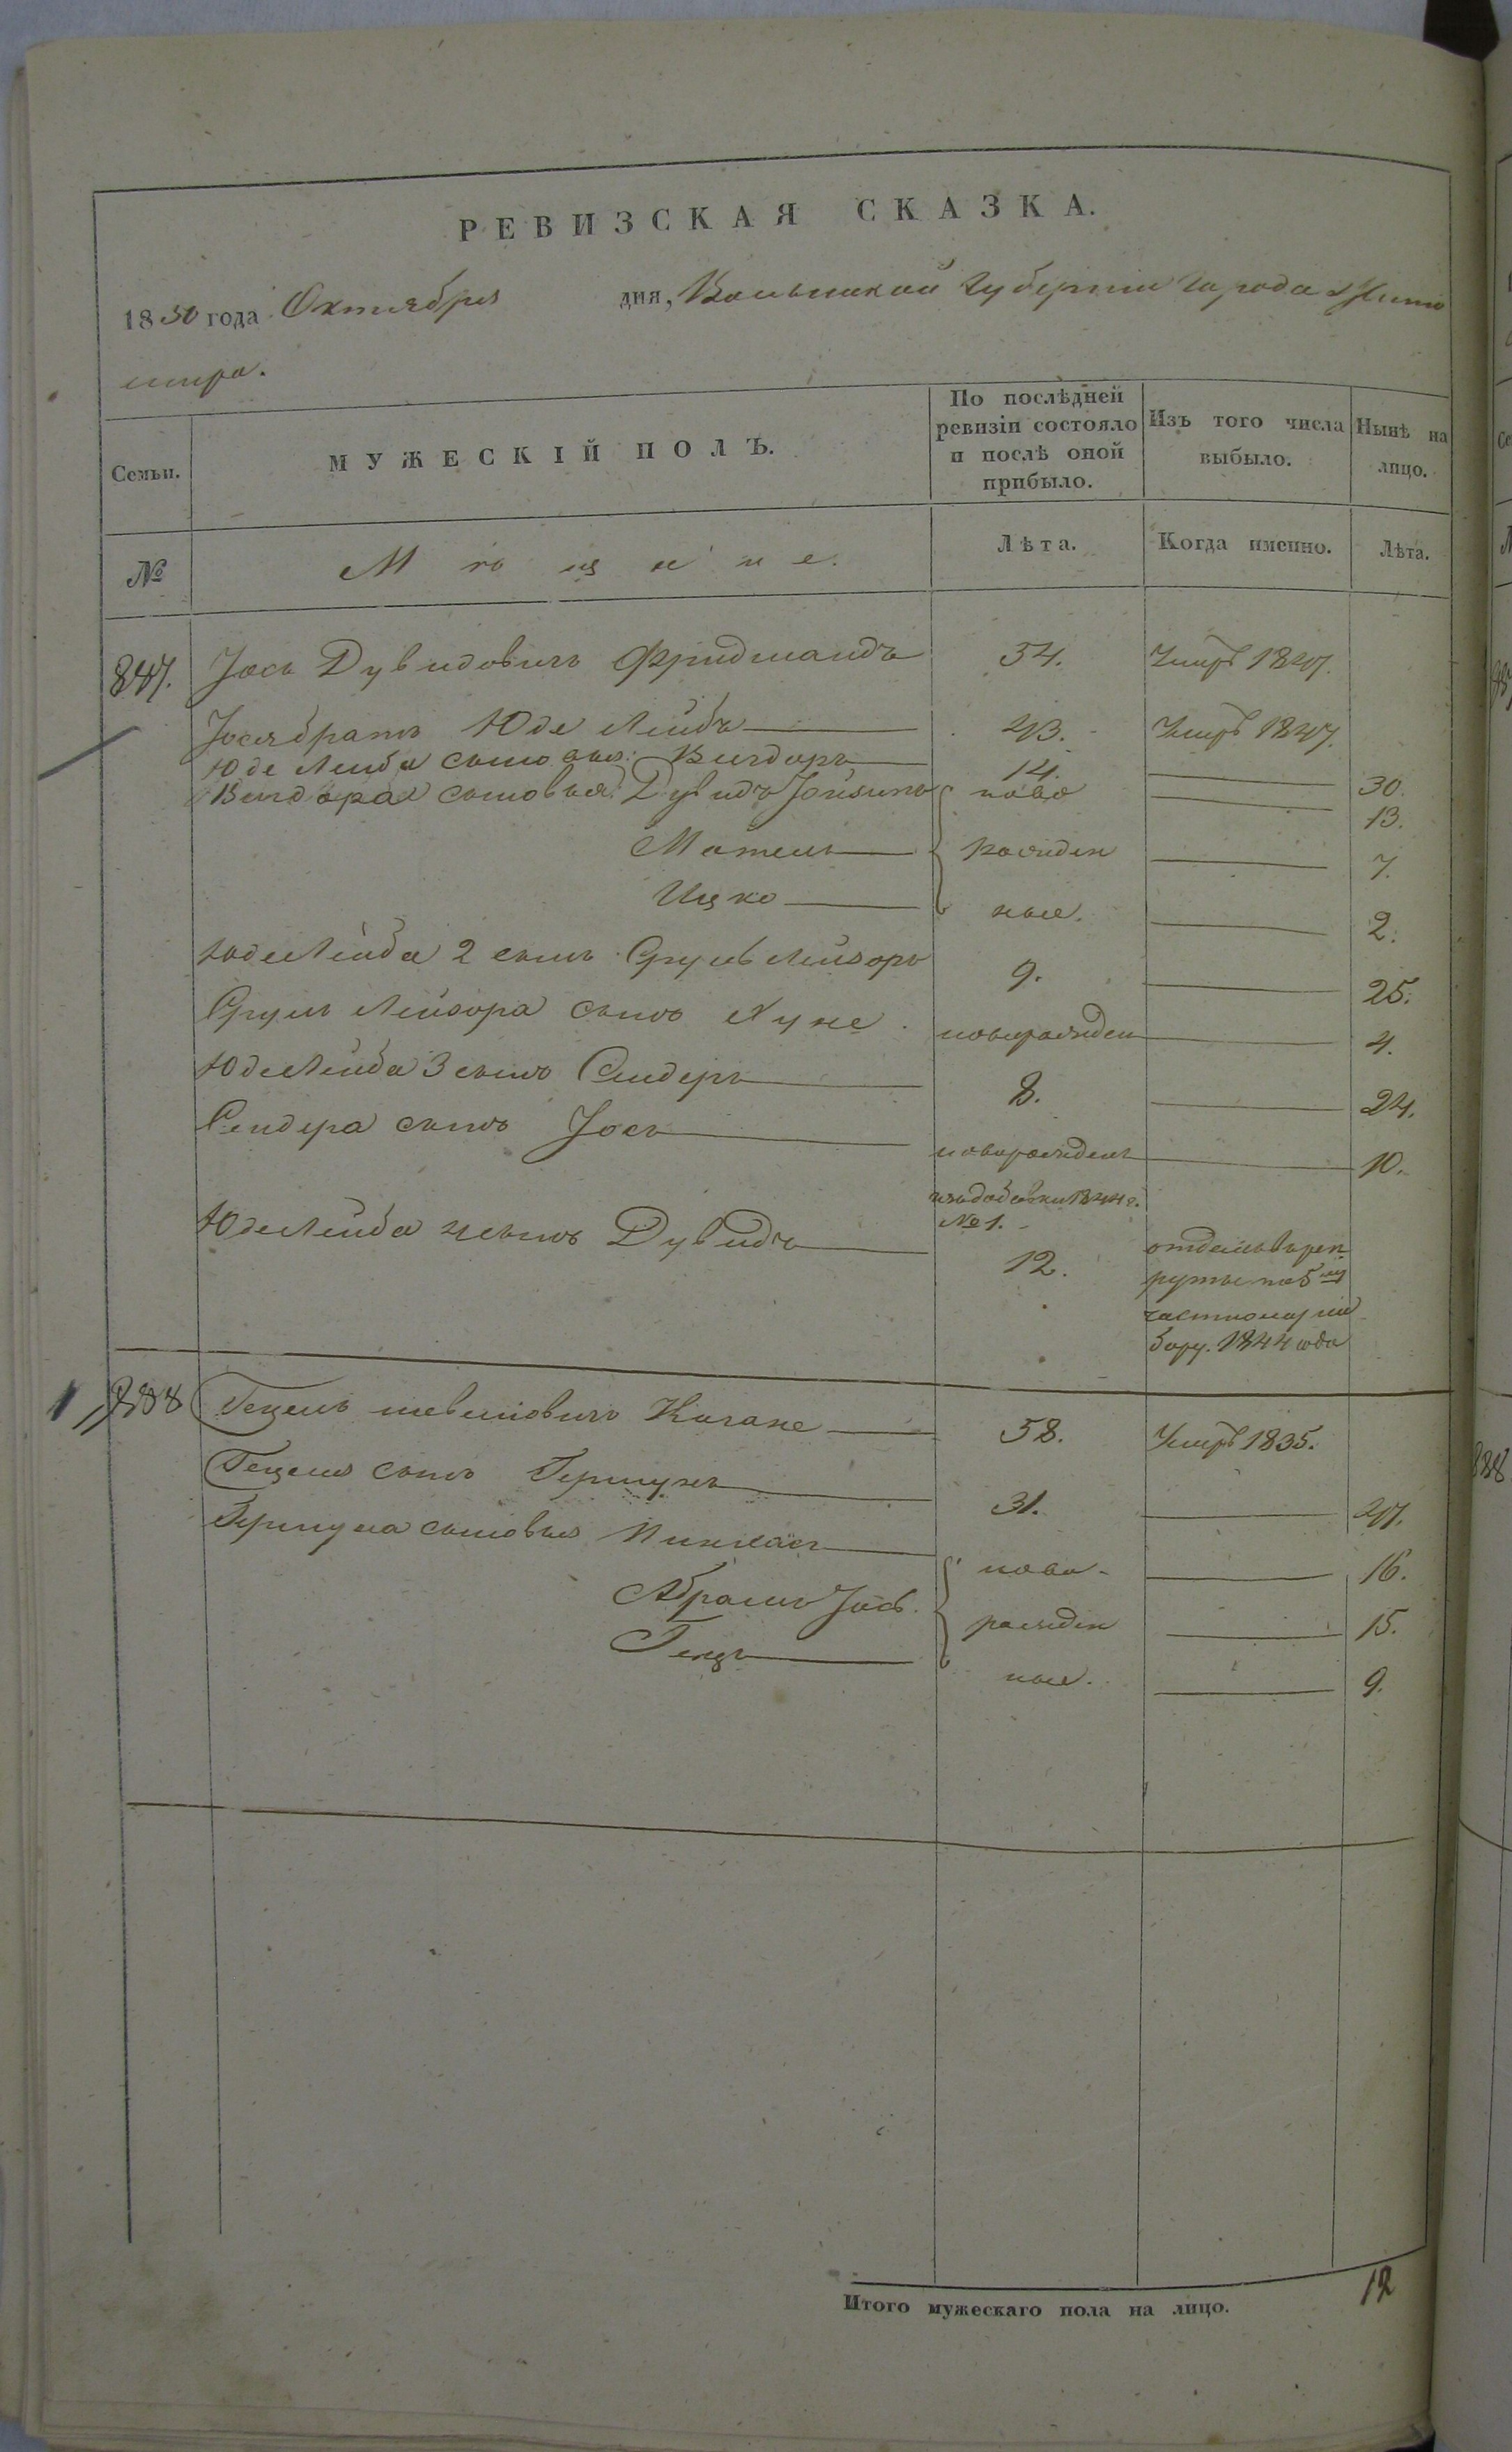 РЕВИЗСКАЯ СКАЗКА.
1850 года Октября дня, Волынской Губернии города Жито
мира.
Семьи. МУЖЕСКІЙ ПОЛЪ. По послѣдней ревизіи состояло и послѣ оной прибыло. Изъ того числа выбыло. Нынѣ на лицо.
№ Мѣщане. Лѣта. Когда именно. Лѣта.
Іось Дувидовичъ Фридмандъ 34. Умеръ 1847.
Іося братъ Юде Лейбъ 43. Умеръ 1847.
Юде Лейба сыновья: Вигдоръ 14. 30.
Вигдора сыновья: Дувидъ ново 13.
Мотель рожден 7.
Ицко ные. 2.
Юде Лейба 2 сынъ Сруль Лейзоръ 9. 25.
Сруль Лейзора сынъ Хуне новорожден 4.
Юде Лейба 3 сынъ Сендеръ 8. 24.
Сендера сынъ Іось новорожденъ 10.
изъ добавки 1844 г.
№ 1.
Юде Лейба 4 сынъ Дувидъ 12. отданъ в рек
руты по 5му
частному на
бору. 1844 года
888 Гецель Кагане 58. Умеръ 1835.
Гецеля сынъ Гершунъ 31. 47.
Гершуна сыновья Пинхасъ ново- 16.
Абрамъ Іось. рожден 15.
ные. 9.
Итого мужескаго пола на лицо. 12